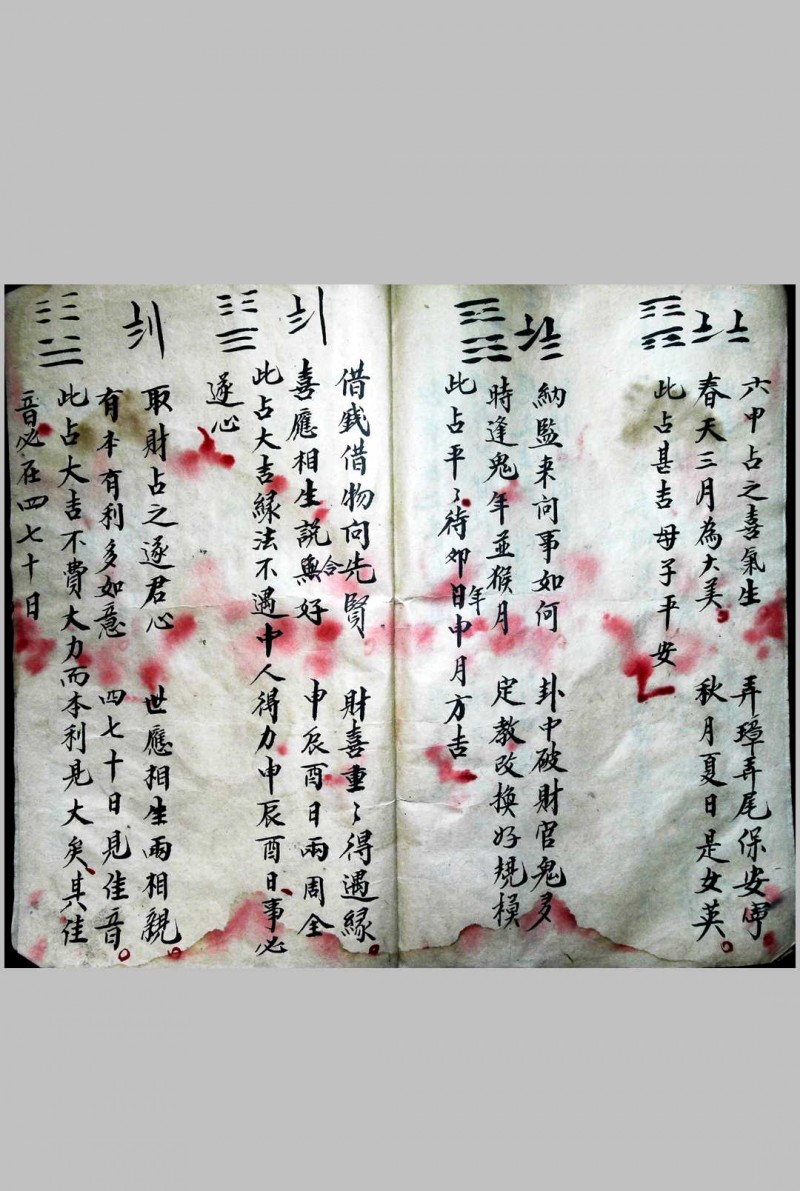 六甲占之喜氣生 弄璋弄尾保安寧
春天三月為大美 秋月夏日是女英
此占甚吉母子平安
納監来问事如何 卦中破財官鬼多
時逢鬼年並猴月 定教改換好規模
此占平〻待卯日年申月方吉
借戔借物向先賢 財喜重〻得遇緣
喜應相生說無合好 申辰酉日兩周全
此占大吉緣法不遇中人得力申辰酉日事必
遂心
取財占之遂君心 世應相生兩相親
有本有利多如意 四七十日見佳音
此占大吉不費大力而本利見大矣其佳
音必在四七十日